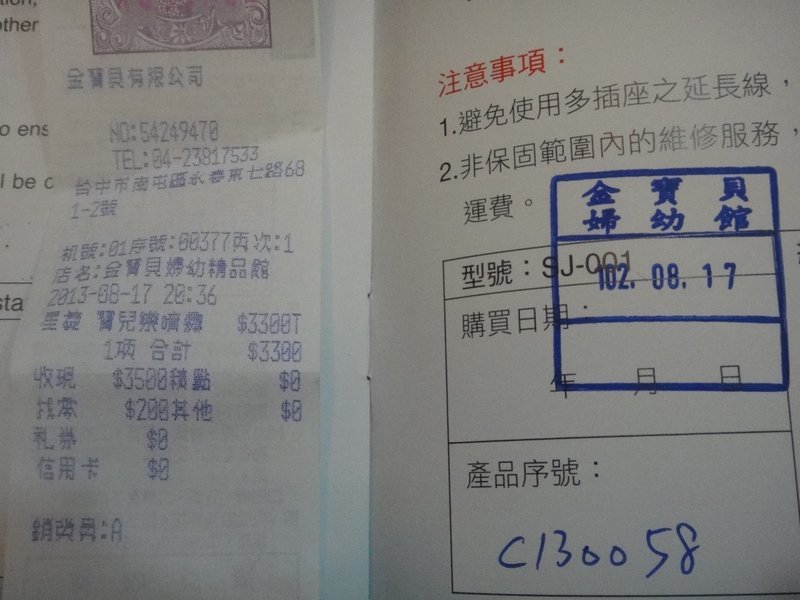 tion,
other
金寶貝有限公司
NO:54249470
TEL:04-23817533
台中市南屯區永春東七路68
1-2號
o ens
l be c
机號:01序號:00377頁次:1
店名:金寶貝婦幼精品館
2013-08-17 20:36
sta
寶兒樂噴霧 $3300T
1項 合計 $3300
收現 $3500積點 $0
找零 $200其他 $0
礼券 $0
信用卡 $0
銷改員:A
注意事項：
1.避免使用多插座之延長線，
2.非保固範圍內的維修服務，
運費。
金寶貝
婦幼館
型號：SJ-001
102.08.17
購買日期：
年 月 日
產品序號：
C130058